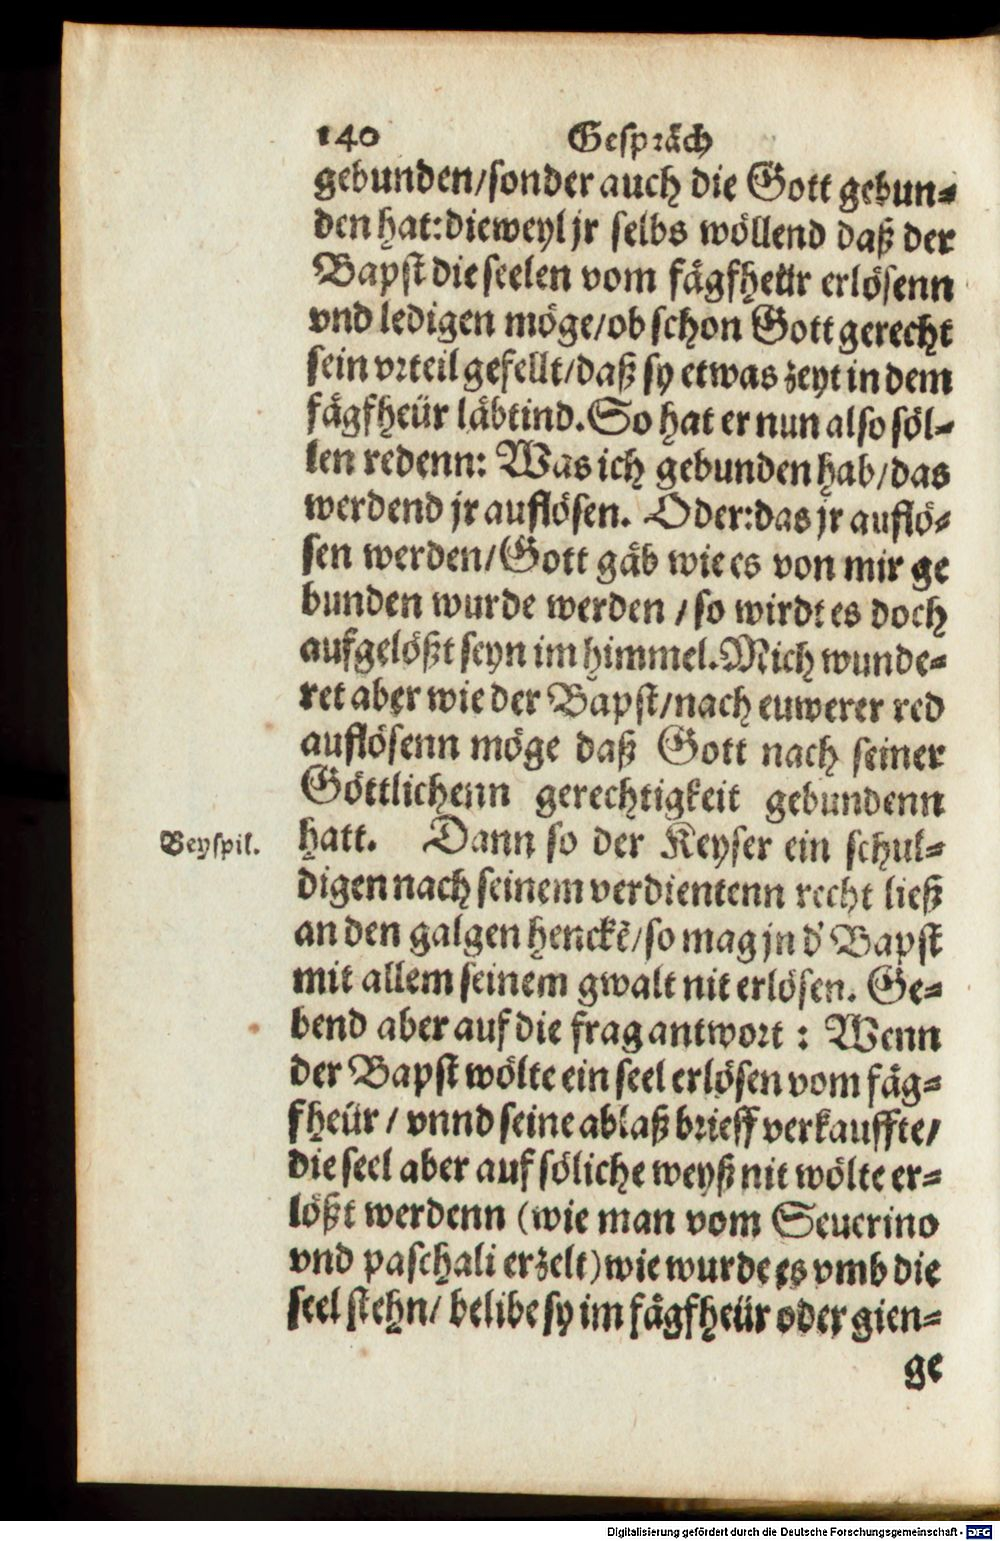 140 Gespräch
gebunden/sonder auch die Gott gebun-
den hat:dieweyl jr selbs wöllend daß der
Bapst die seelen vom fägfheür erlösenn
vnd ledigen möge/ob schon Gott gerecht
sein vrteil gefellt/daß sy etwas zeyt in dem
fägfheür läbtind. So hat er nun also söl-
len redenn: Was ich gebunden hab/das
werdend jr auflösen. Oder:das jr auflö-
sen werden/Gott gäb wie es von mir ge
bunden wurde werden /so wirdt es doch
aufgelößt seyn im himmel. Mich wunde-
ret aber wie der Bapst/nach euwerer red
auflösenn möge daß Gott nach seiner
Göttlichenn gerechtigkeit gebundenn
Beyspil. hatt. Dann so der Keyser ein schul-
digen nach seinem verdientenn recht ließ
an den galgen henckē/so mag jn d' Bapst
mit allem seinem gwalt nit erlösen. Ge-
bend aber auf die frag antwort : Wenn
der Bapst wölte ein seel erlösen vom fäg-
fheür / vnnd seine ablaß brieff verkauffte/
die seel aber auf söliche weyß nit wölte er-
lößt werdenn (wie man vom Seuerino
vnd paschali erzelt) wie wurde es vmb die
seel stehn/ belibe sy im fägfheür oder gien-
ge
Digitalisierung gefördert durch die Deutsche Forschungsgemeinschaft - DFG